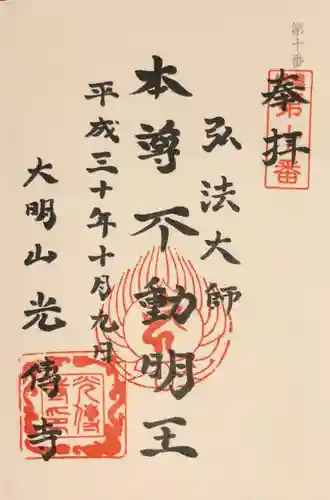 第十番
奉拝
弘法大師
本尊不動明王
平成三十年十月九日
大明山光傳寺